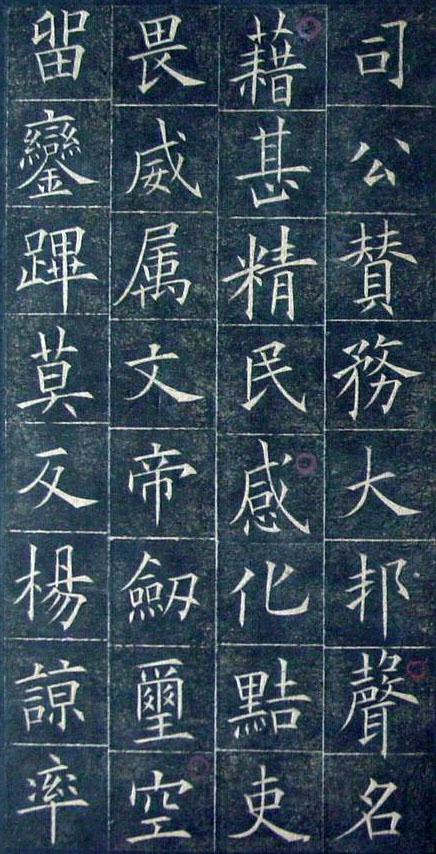 司公賛務大邦聲名
藉甚精民感化黠吏
畏威属文帝劒璽空
留鑾蹕莫反楊諒率